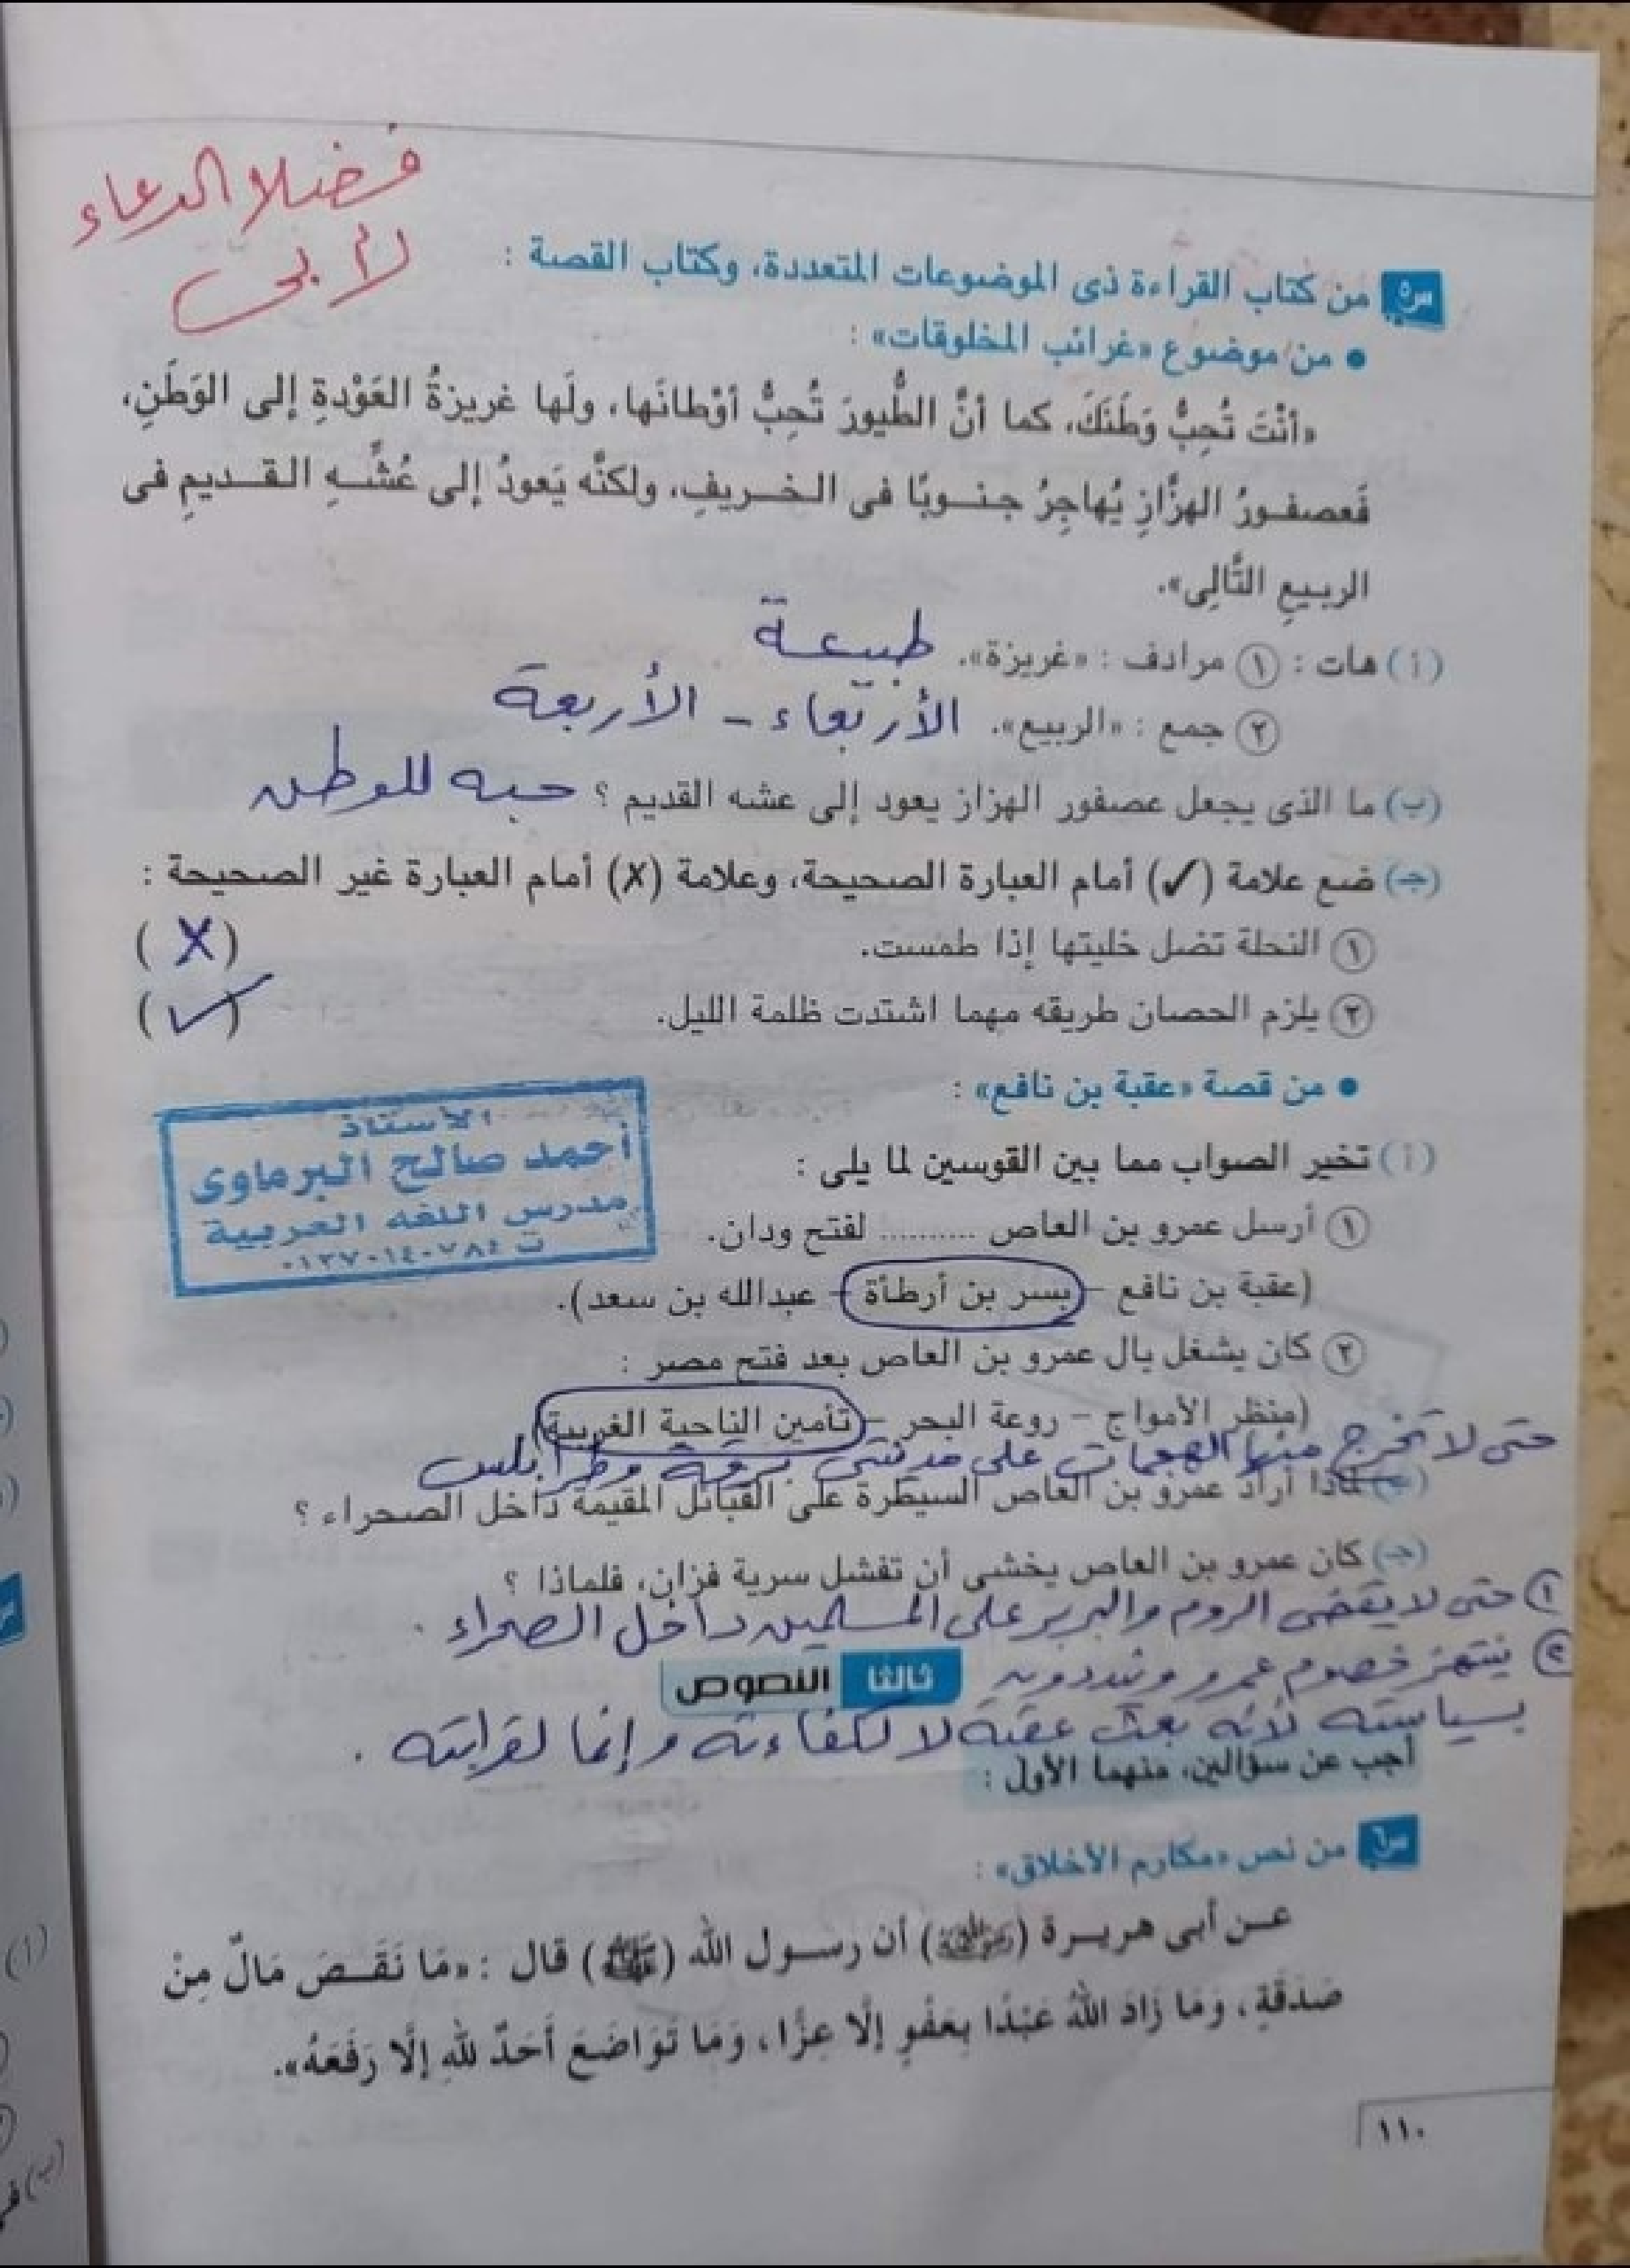 فضلا الدعاء
لأبى
س٥ من كتاب القراءة ذى الموضوعات المتعددة، وكتاب القصة :
• من موضوع «غرائب المخلوقات» :
«أنْتَ تُحِبُّ وَطَنَكَ، كما أنَّ الطُّيورَ تُحِبُّ أوْطانَها، ولَها غريزةُ العَوْدةِ إلى الوَطَنِ،
فَعصفورُ الهزَّازِ يُهاجِرُ جنوبًا فى الخريفِ، ولكنَّه يَعودُ إلى عُشِّهِ القديمِ فى
الربيعِ التَّالِى».
(أ) هات : ١ مرادف : «غريزة». طبيعة
٢ جمع : «الربيع». الأربعاء - الأربعة
(ب) ما الذى يجعل عصفور الهزاز يعود إلى عشه القديم ؟ حبه للوطن
(جـ) ضع علامة (✓) أمام العبارة الصحيحة، وعلامة (X) أمام العبارة غير الصحيحة :
١ النحلة تضل خليتها إذا طمست. (X)
٢ يلزم الحصان طريقه مهما اشتدت ظلمة الليل. (✓)
• من قصة «عقبة بن نافع» :
الأستاذ
أحمد صالح البرماوى
مدرس اللغه العربية
ت ٠١٢٧٠١٤٠٧٨٤
(أ) تخير الصواب مما بين القوسين لما يلى :
١ أرسل عمرو بن العاص .......... لفتح ودان.
(عقبة بن نافع - بسر بن أرطأة - عبدالله بن سعد).
٢ كان يشغل بال عمرو بن العاص بعد فتح مصر :
(منظر الأمواج - روعة البحر - تأمين الناحية الغربية)
حتى لا تخرج منها الهجمات على مدينتى برقة وطرابلس
(ب) لماذا أراد عمرو بن العاص السيطرة على القبائل المقيمة داخل الصحراء ؟
(جـ) كان عمرو بن العاص يخشى أن تفشل سرية فزان، فلماذا ؟
١ حتى لا يقضى الروم والبربر على المسلمين داخل الصحراء .
٢ ينتهز خصوم عمرو ونددون
ثالثا النصوص
بسياسته لأنه بعث عقبة لا لكفاءته وإنما لقرابته .
أجب عن سؤالين، منهما الأول :
س٦ من نص «مكارم الأخلاق» :
عن أبى هريرة (رضي الله عنه) أن رسول الله (ﷺ) قال : «مَا نَقَصَ مَالٌ مِنْ
صَدَقَةٍ، وَمَا زَادَ اللهُ عَبْدًا بِعَفْوٍ إلَّا عِزًّا، وَمَا تَوَاضَعَ أَحَدٌ للهِ إلَّا رَفَعَهُ».
١١٠